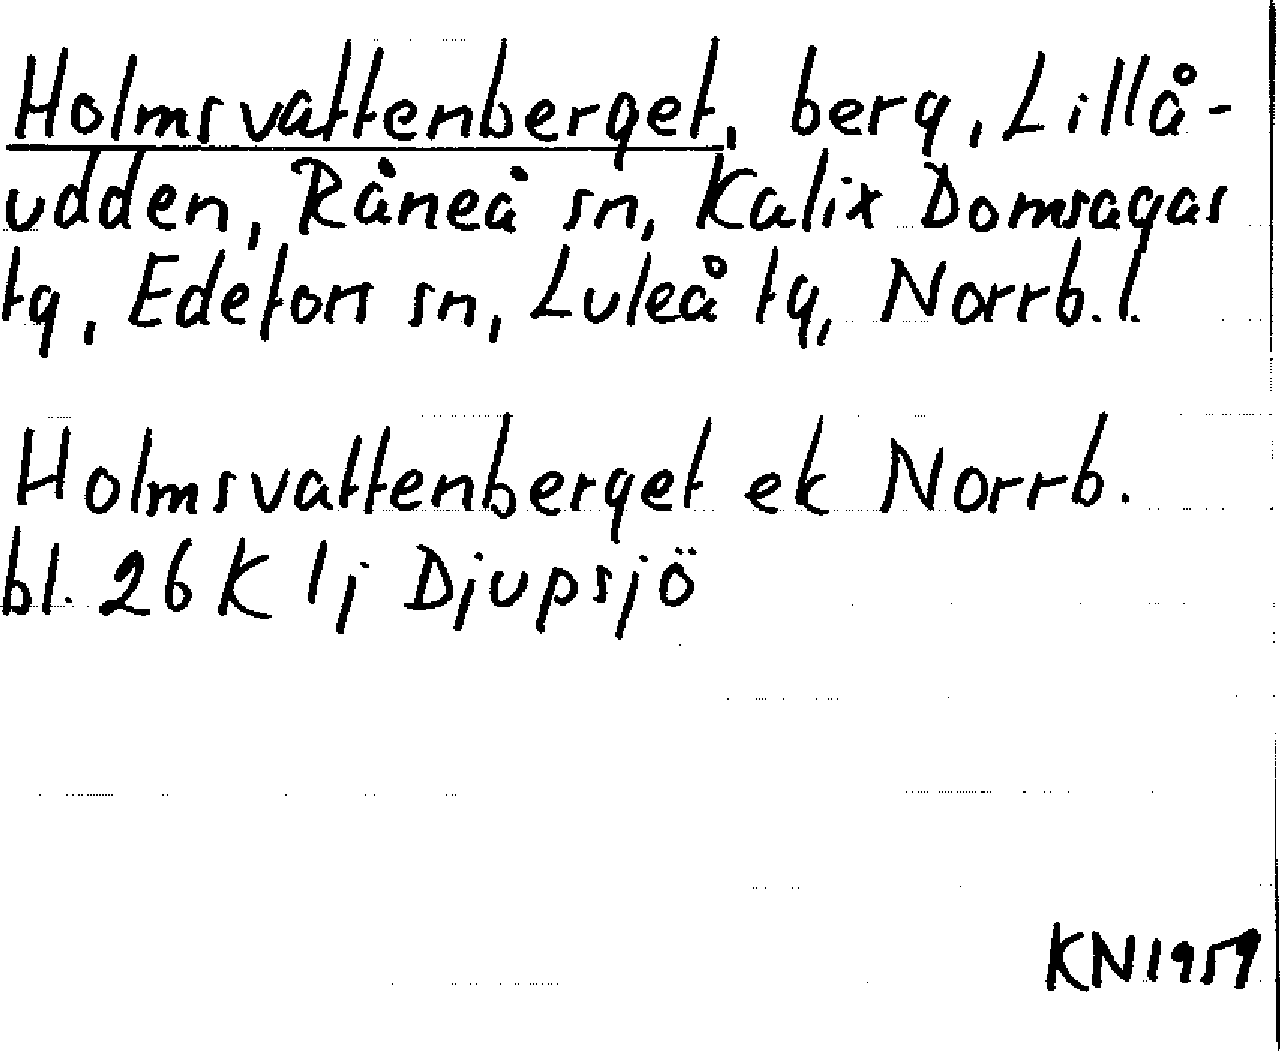 Holmsvattenberget, berg, Lillå-
udden, Råneå sn, Kalix Domsagas
tg, Edefors sn, Luleå tg, Norrb. l.
Holmsvattenberget ek Norrb.
bl. 26 K 1j Djupsjö
KN 1959